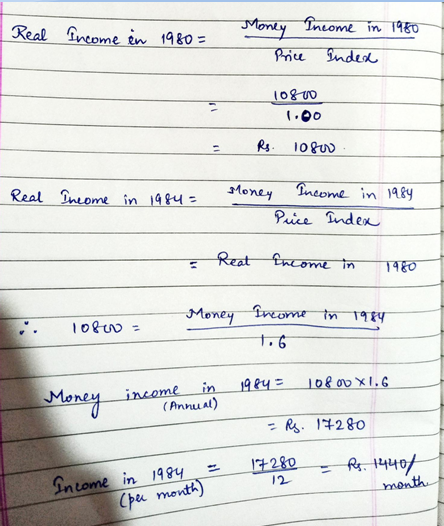 Real Income in 1980 = Money Income in 1980 / Price Index
= 10800 / 1.00
= Rs. 10800.
Real Income in 1984 = Money Income in 1984 / Price Index
= Real Income in 1980
∴ 10800 = Money Income in 1984 / 1.6
Money income in 1984 = 10800 × 1.6
(Annual)
= Rs. 17280
Income in 1984 = 17280 / 12 = Rs. 1440/
(per month) month.